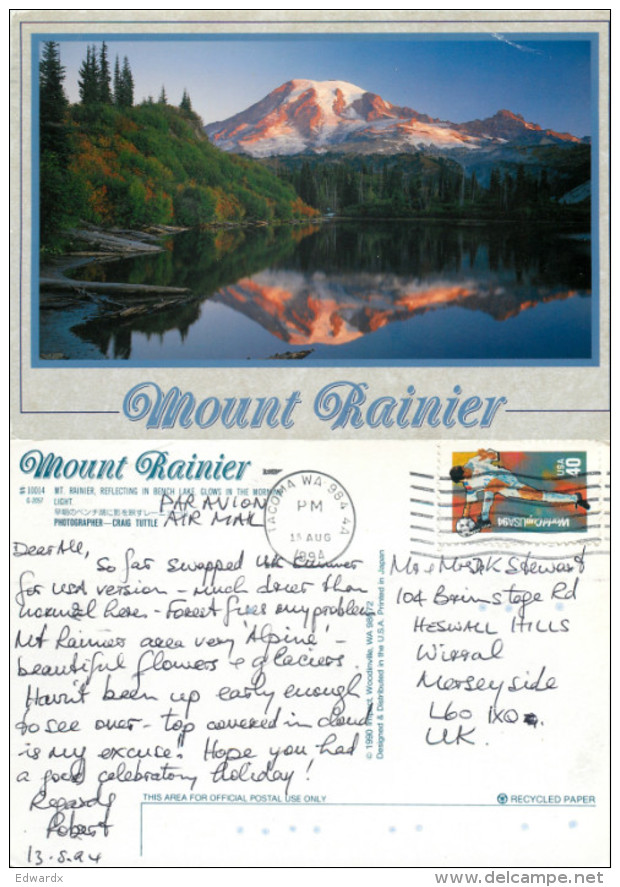 Mount Rainier
Mount Rainier
# 10014 MT. RAINIER, REFLECTING IN BENCH LAKE, GLOWS IN THE MORNING
LIGHT.
PHOTOGRAPHER—CRAIG TUTTLE
PAR AVION
AIR MAIL
TACOMA WA 984 4A
PM
15 AUG
1994
USA 40
WorldCupUSA94
Dear All,
So far swapped UK Summer
for USA version - much drier than
normal here - Forest fires my problem
Mt Rainier area very 'Alpine' -
beautiful flowers & glaciers.
Havn't been up early enough
to see over - top covered in cloud
is my excuse! Hope you had
a good celebratory holiday!
Regards
Robert
13.8.94
Mr & Mrs K Stewart
104 Brimstage Rd
HESWALL HILLS
Wirral
Merseyside
L60 1XQ
UK.
© 1990 Impact, Woodinville, WA 98072
Designed & Distributed in the U.S.A. Printed in Japan
THIS AREA FOR OFFICIAL POSTAL USE ONLY
RECYCLED PAPER
Edwardx
www.delcampe.net